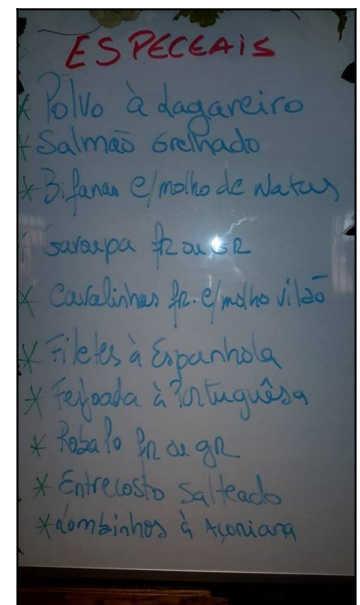 ESPECEAIS
* Polvo à Lagareiro
* Salmão Grelhado
* Bifanas c/molho de Natas
* Garoupa fr ou GR
* Cavalinhas fr. c/molho vilão
* Filetes à Espanhola
* Feijoada à Portuguêsa
* Robalo fr ou gr
* Entrecosto Salteado
* Lombinhos à Açoriana